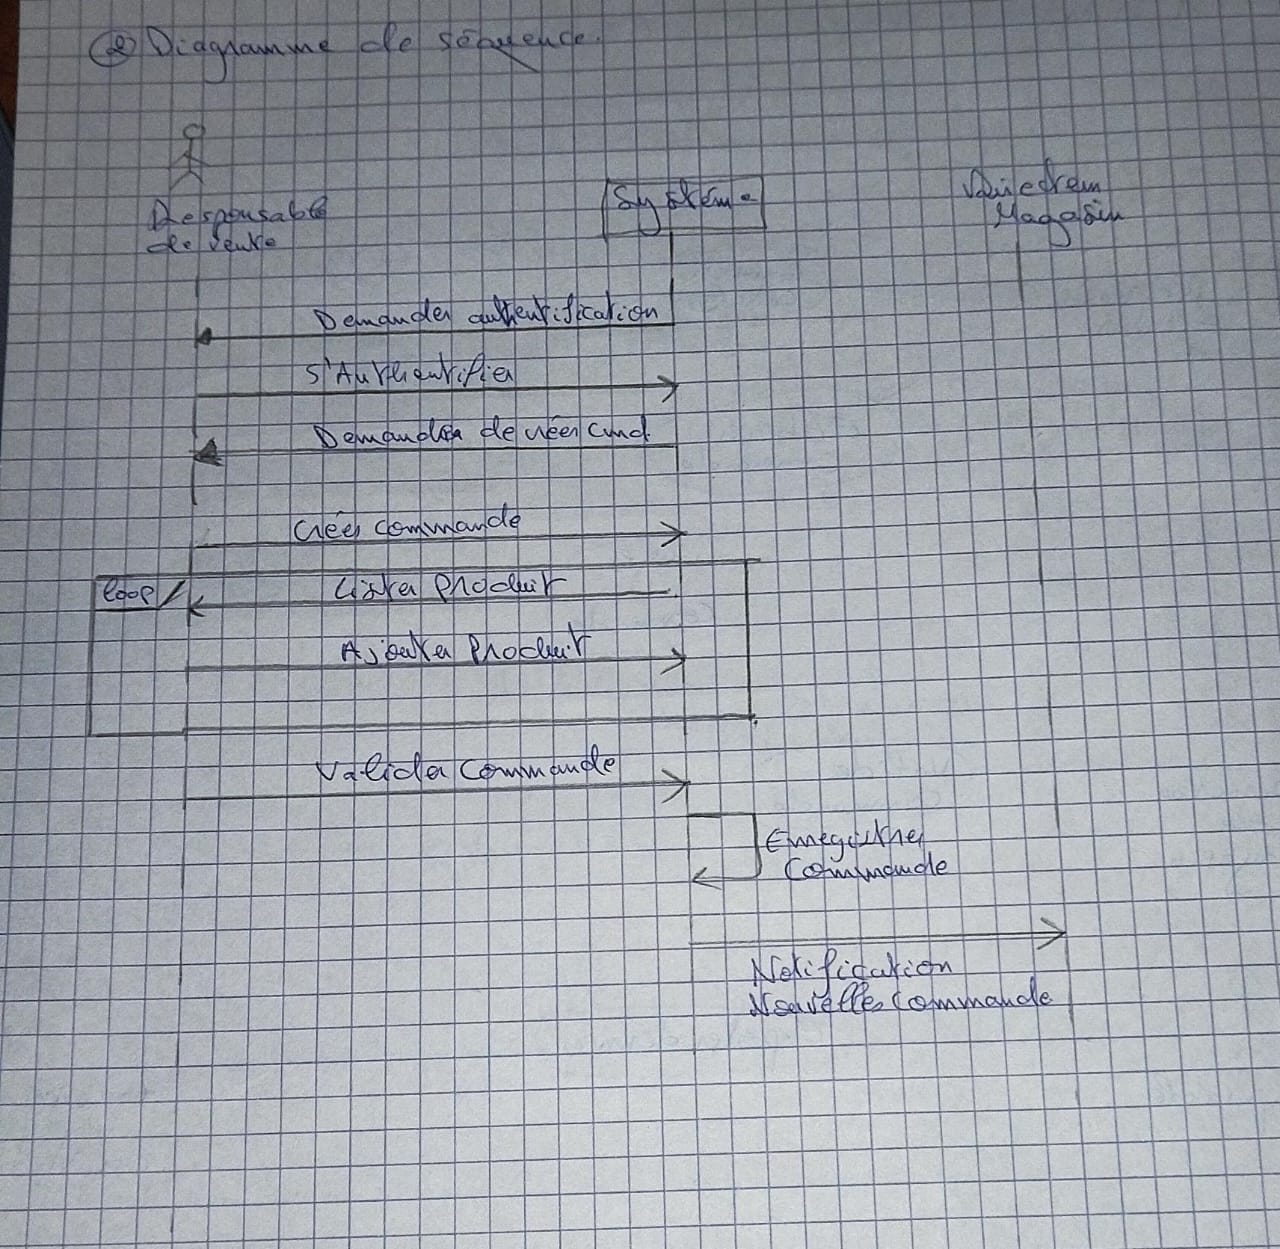 ② Diagramme de séquence.
Responsable
de vente
Système
Magasin
Demander authentification
S'Authentifier
Demander de créer cmd
Créer commande
loop
Lister Produit
Ajouter Produit
Valider Commande
Enregistrer
Commande
Notification
Nouvelles Commande